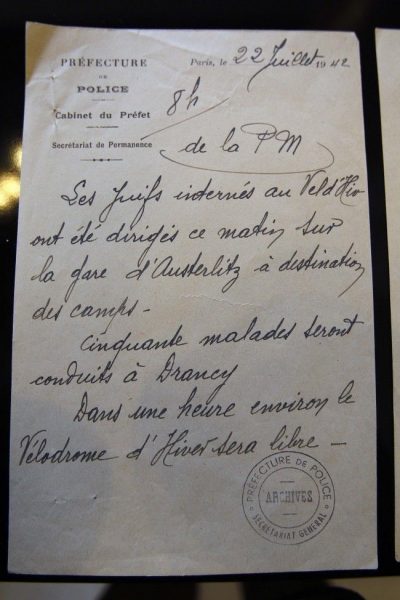 PRÉFECTURE
DE
POLICE
Cabinet du Préfet
Secrétariat de Permanence
Paris, le 22 Juillet 1942
8h
de la P M
Les Juifs internés au Vel d'Hiv
ont été dirigés ce matin sur
la gare d'Austerlitz à destination
des camps -
Cinquante malades seront
conduits à Drancy
Dans une heure environ le
Vélodrome d'Hiver sera libre —
PRÉFECTURE DE POLICE
ARCHIVES
SECRÉTARIAT GÉNÉRAL